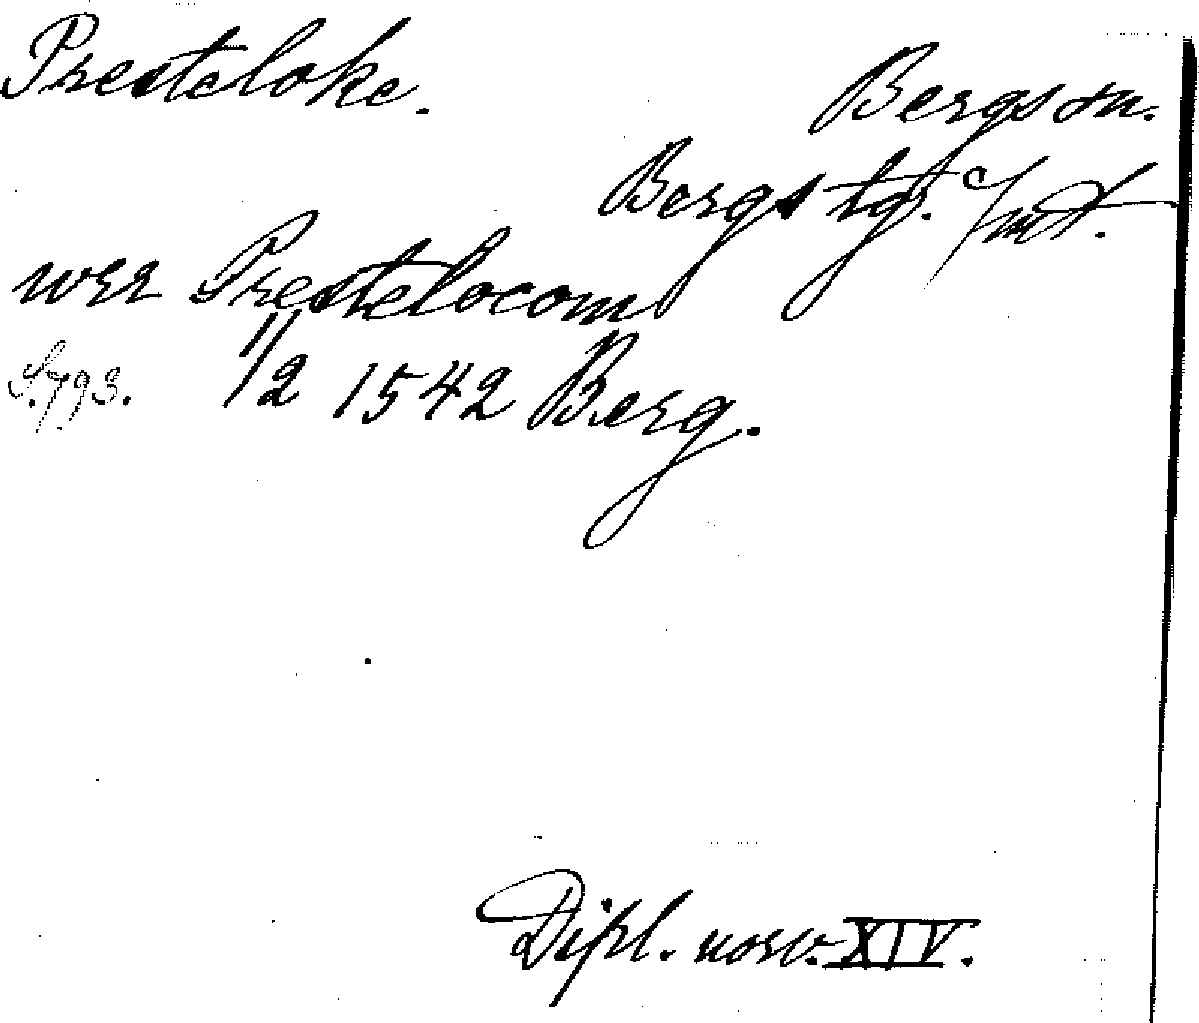 Presteloke.
Bergs sn.
Bergs tg. Jmt.
wer Prestelocom
S. 793. 11/2 1542 Berg.
Dipl. norv. XIV.